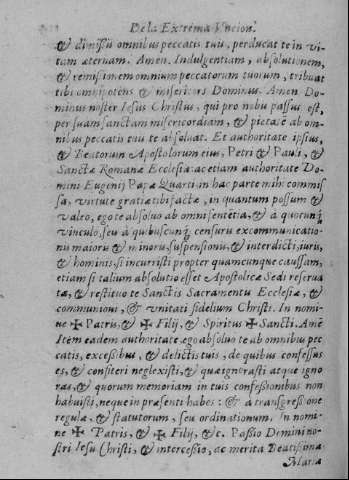 De la Extrema Vncion.
& dimissis omnibus peccatis tuis, perducat te in vi-
tam æternam. Amen. Indulgentiam, absolutionem,
& remissionem omnium peccatorum tuorum, tribuat
tibi omnipotens & misericors Dominus. Amen. Do-
minus noster Iesus Christus, qui pro nobis passus est,
per suam sanctam misericordiam, & pietatẽ ab om-
nibus peccatis tuis te absoluat. Et authoritate ipsius,
& Beatorum Apostolorum eius, Petri & Pauli, &
Sanctæ Romanæ Ecclesiæ: ac etiam authoritate Do-
mini Eugenij Papæ Quarti in hac parte mihi commis
sa, virtute gratiæ tibi factæ, in quantum possum &
valeo, ego te absoluo ab omni sentẽtia, & à quocunq;
vinculo, seu à quibuscunq; censuris excommunicatio-
nu maioru & minoru, suspensionu, & interdicti, iuris,
& hominis, si incurristi propter quamcunque caussam,
etiam si talium absolutio esset Apostolicæ Sedi reserua
ta, & restituo te Sanctis Sacramentis Ecclesiæ, &
communioni, & vnitati fidelium Christi. In nomi-
ne ✠ Patris, & ✠ Filij, & Spiritus ✠ Sancti. Amẽ
Item eadem authoritate ego absoluo te ab omnibus pec
catis, excessibus, & delictis tuis, de quibus confessus
es, & confiteri neglexisti, & quæ ignorasti atque igno-
ras, & quorum memoriam in tuis confessionibus non
habuisti, neque in præsenti habes: & à transgressione
regulæ, & statutorum, seu ordinationum. In nomi-
ne ✠ Patris, & ✠ Filij, &c. Passio Domini no-
stri Iesu Christi, & intercessio, ac merita Beatissimæ
Mariæ